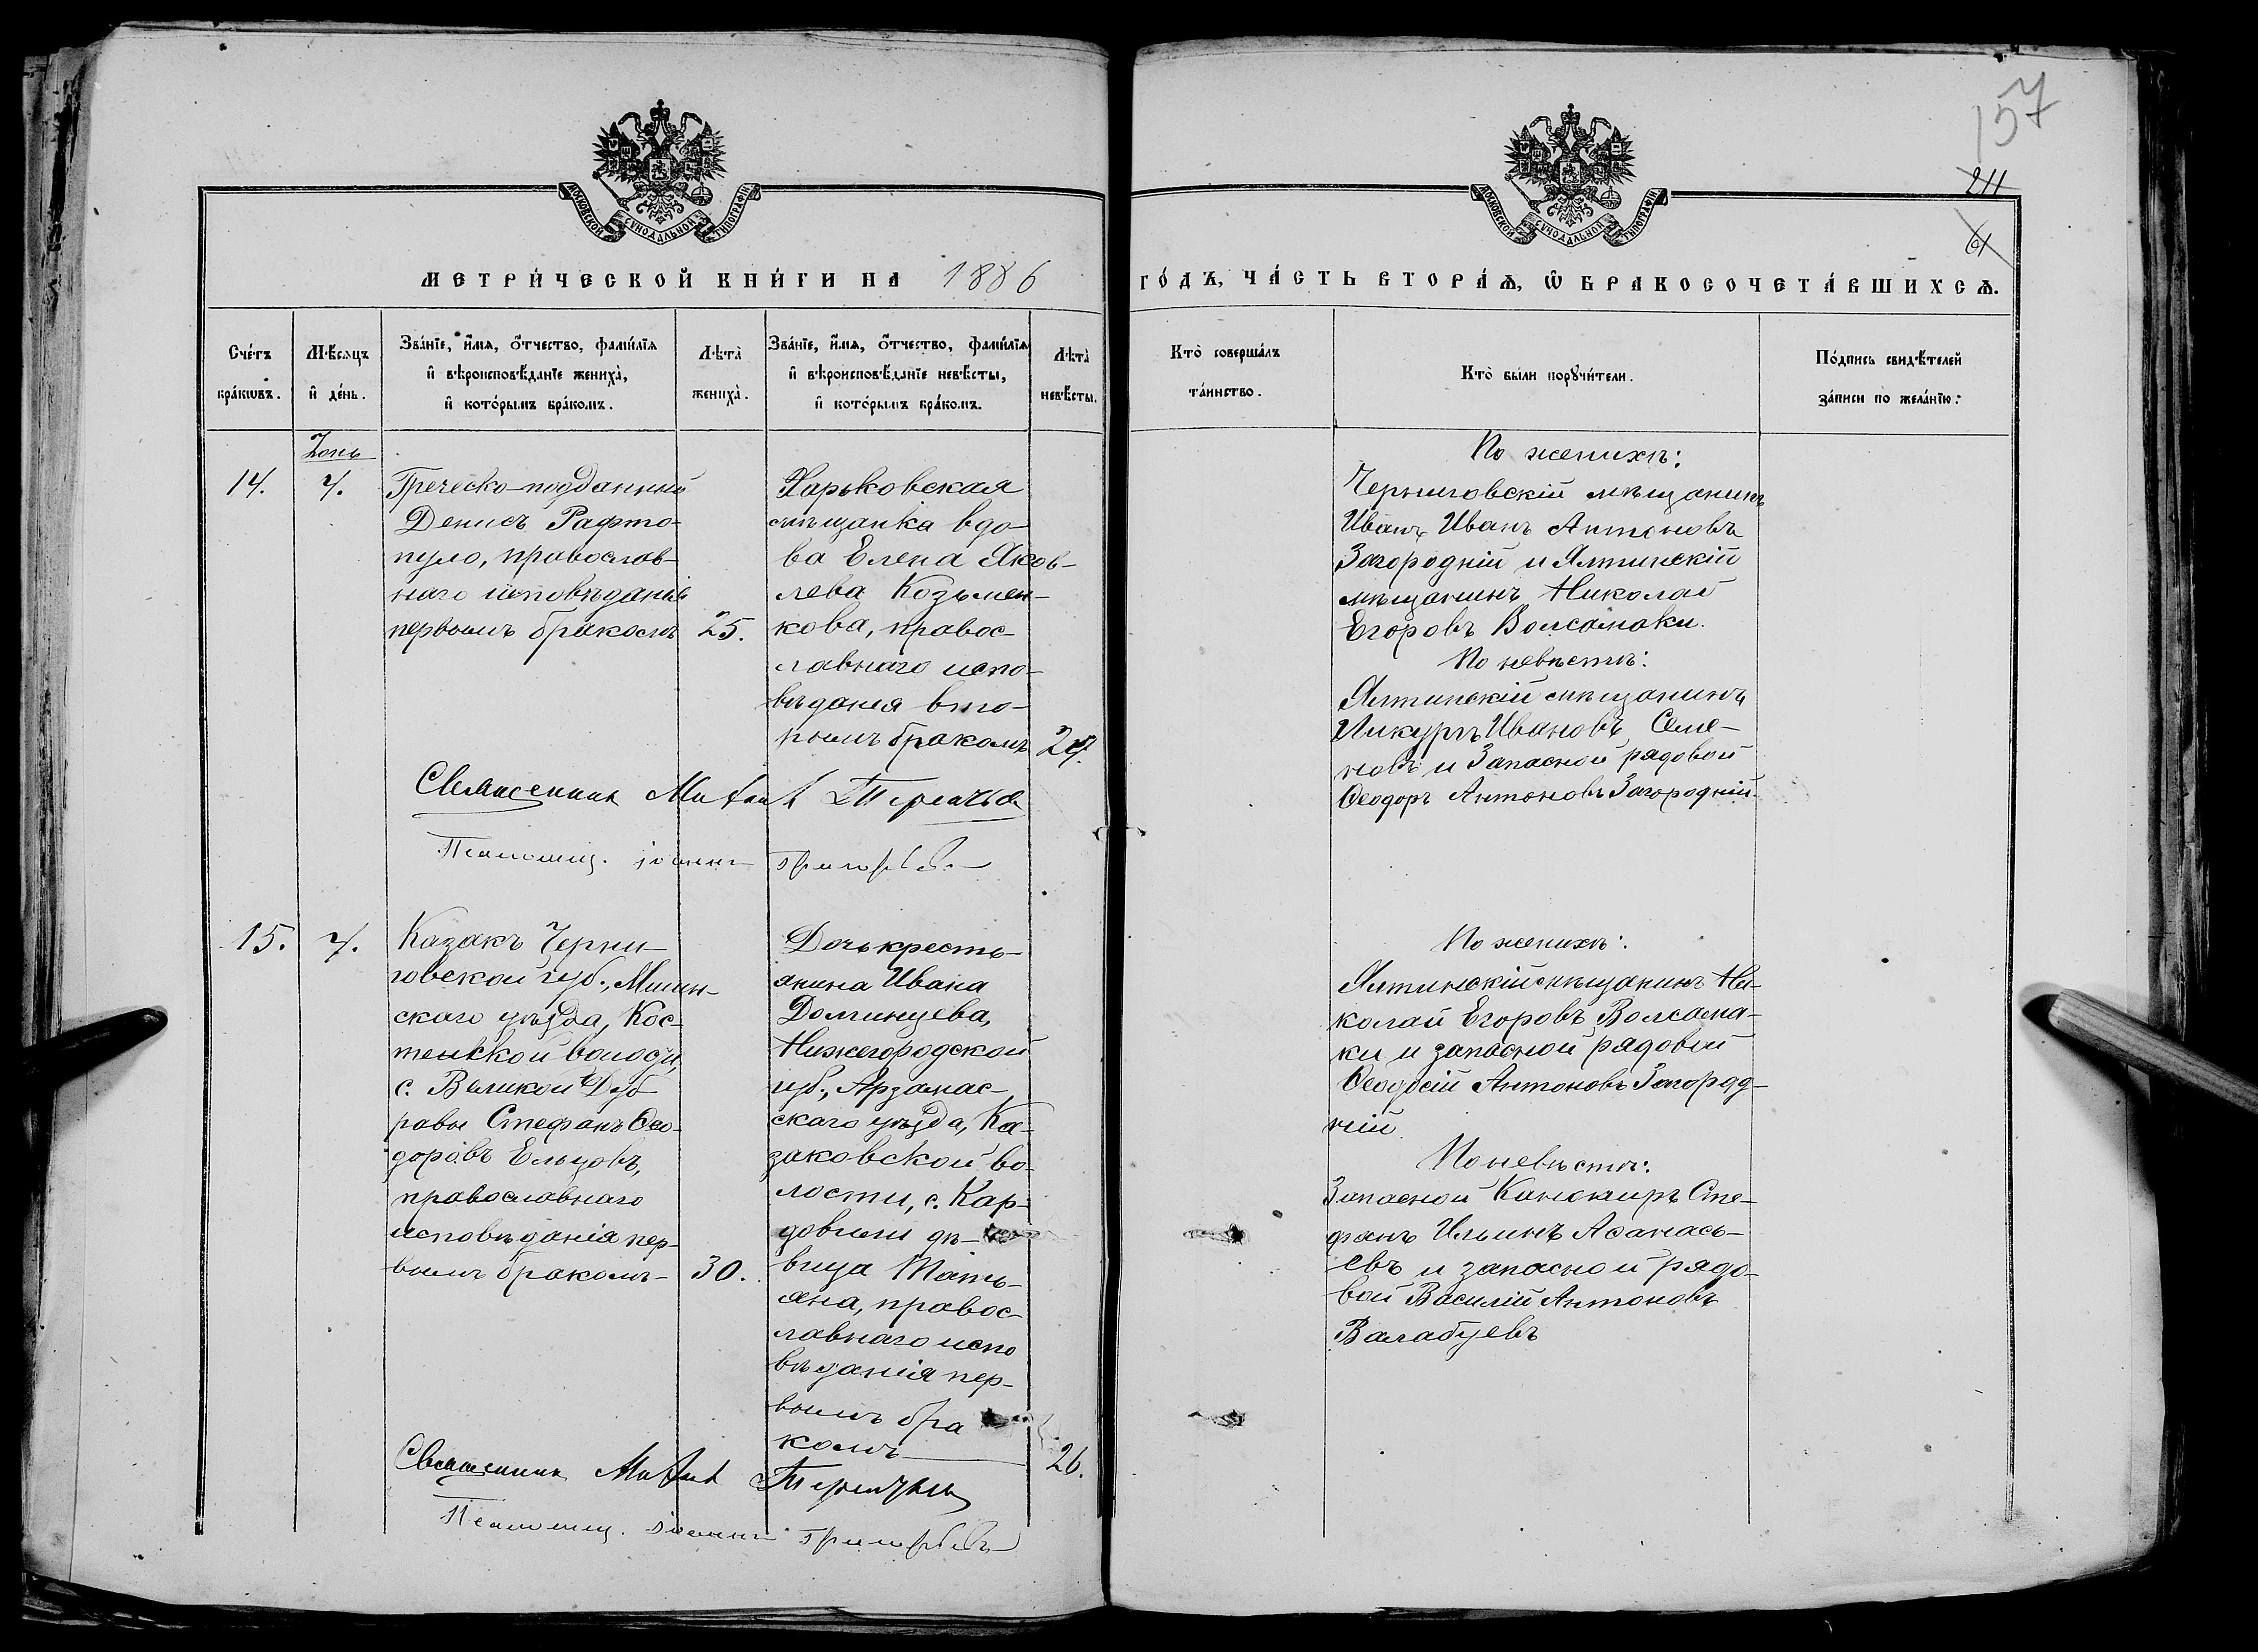 157
211
61
МОСКОВСКОЙ СѴНОДАЛЬНОЙ ТИПОГРАФІИ
МОСКОВСКОЙ СѴНОДАЛЬНОЙ ТИПОГРАФІИ
МЕТРИ́ЧЕСКОЙ КНИ́ГИ НА 1886
ГО́ДЪ, ЧА́СТЬ ВТОРА́Ѧ, Ѽ БРАКОСОЧЕТА́ВШИХСѦ.
Сче́тъ
бра́кѡвъ.
Мѣ́сѧцъ
и҆ де́нь.
Зва́нїе, и҆́мѧ, ѻ҆́тчество, фами́лїѧ
и҆ вѣроисповѣ́данїе жениха̀,
и҆ кото́рымъ бра́комъ.
Лѣта̀
жениха̀.
Зва́нїе, и҆́мѧ, ѻ҆́тчество, фами́лїѧ
и҆ вѣроисповѣ́данїе невѣ́сты,
и҆ кото́рымъ бра́комъ.
Лѣта̀
невѣ́сты.
Кто̀ соверша́лъ
та́инство.
Кто̀ бы́ли порꙋчи́тели.
По́дпись свидѣ́телей
за́писи по жела́нїю:
14.
7.
Греческо-подданный
Денисъ Рафто-
пуло, православ-
наго исповѣданія
первымъ бракомъ
25.
Харьковская
мѣщанка вдо-
ва Елена Яков-
лева Козьмен-
кова, правос-
лавнаго испо-
вѣданія вто-
рымъ бракомъ
По женихѣ:
Черниговскій мѣщанинъ
Иванъ Иванъ Антоновъ
Загородній и Ялтинскій
мѣщанинъ Николай
Егоровъ Волсамаки.
По невѣстѣ:
Ялтинскій мѣщанинъ
Ликургъ Ивановъ Семе-
новъ и Запасной рядовой
Ѳеодоръ Антоновъ Загородній.
Священникъ Михаилъ
Псаломщ. Іоаннъ Григорьевъ
15.
7.
Казакъ Черни-
говской губ., Мглин-
скаго уѣзда, Кос-
тенской волости,
с. Великой Дуб
равы Стефанъ Ѳео-
доровъ Ельцовъ,
православнаго
исповѣданія пер-
вымъ бракомъ-
30.
Дочь кресть-
янина Ивана
Доминцева,
Нижегородской
губ., Арзамас-
скаго уѣзда, Ка-
заковской во-
лости, с. Кар-
довили дѣ-
вица Тать-
яна, правос-
лавнаго испо
вѣданія пер-
вымъ бра
комъ
26.
По женихѣ:
Ялтинскій мѣщанинъ Ни-
колай Егоровъ Волсама-
ки и запасной рядовой
Ѳеодосій Антоновъ Загород-
ній.
По невѣстѣ:
Запасной Канониръ Сте-
фанъ Ильинъ Аѳанась-
евъ и запасной рядо-
вой Василій Антоновъ
Валабуевъ
Священникъ Михаилъ
Псаломщ. Іоаннъ Григорьевъ